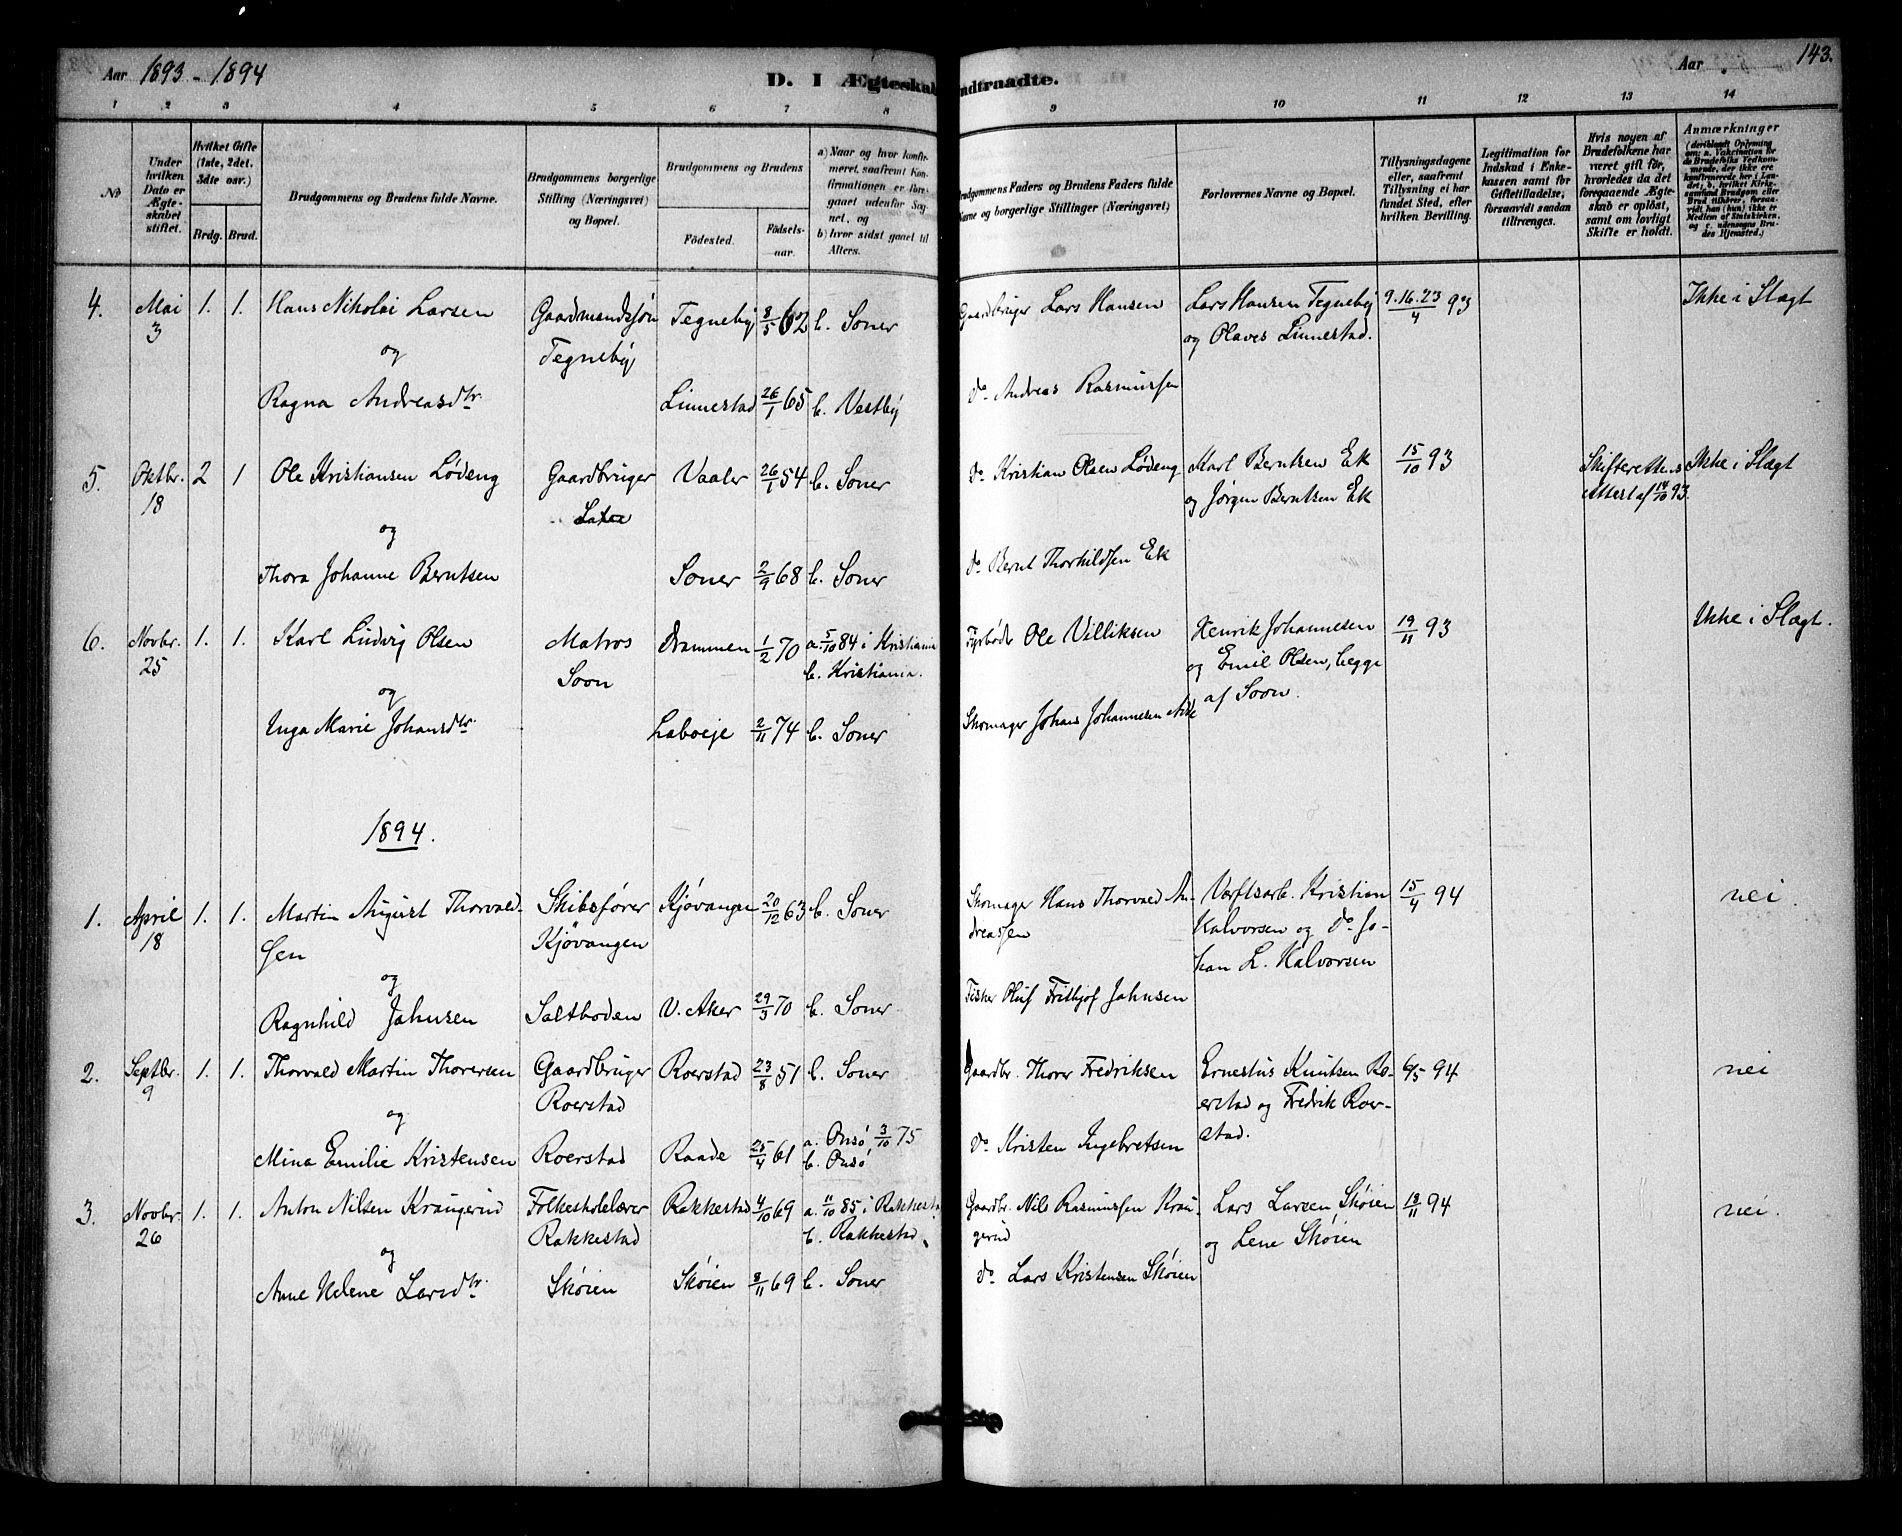 Aar 1893 - 1894
D. I Ægteskab
Indtraadte.
Aar
143.
1 2 3 4 5 6 7 8 9 10 11 12 13 14
No
Under hvilken Dato er Ægteskabet stiftet.
Hvilket Gifte (1ste, 2det, 3die osv.)
Brdg. Brud.
Brudgommens og Brudens fulde Navne.
Brudgommens borgerlige Stilling (Næringsvei) og Bopæl.
Brudgommens og Brudens
Födested.
Födselsaar.
a) Naar og hvor konfirmeret, saafremt Konfirmationen er foregaaet udenfor Sognet, og
b) hvor sidst gaaet til Alters.
Brudgommens Faders og Brudens Faders fulde Navne og borgerlige Stillinger (Næringsvei)
Forlovernes Navne og Bopæl.
Tillysningsdagene eller, saafremt Tillysning ei har fundet Sted, efter hvilken Bevilling.
Legitimation for Indskud i Enkekassen samt for Giftetilladelse, forsaavidt saadan tiltrænges.
Hvis nogen af Brudefolkene har været gift før, hvorledes da det foregaaende Ægteskab er opløst, samt om lovligt Skifte er holdt.
Anmærkninger
(deriblandt Oplysning om: a. Vakcination for de Brudefolks Vedkommende, der ikke ere konfirmerede her i Landet; b. hvilket Kirkesamfund Brudgom eller Brud tilhører, forsaavidt han (hun) ikke er Medlem af Statskirken, og c. udensogns Brudes Hjemsted.)
4. Mai 3 1. 1. Hans Nikolai Larsen Gaardmandssøn Tegneby Tegneby 8/5 62 b. Soner Gaardbruger Lars Hansen Lars Hansen Tegneby og Olaves Linnestad. 9.16.23/4 93 Ikke i Slægt
og
Ragna Andreasdtr. Linnestad 26/1 65 b. Vestby do Andreas Rasmussen
5. Oktbr. 18 2 1 Ole Kristiansen Lødeng Gaardbruger Vaaler 26/1 54 b. Soner do Kristian Olsen Lødeng Karl Berntsen Ek og Jørgen Berntsen Ek 15/10 93 Skifterettens Attest af 14/10 93. Ikke i Slægt
og
Thora Johanne Berntsen Soner 2/9 68 b. Soner do Bernt Thorkildsen Ek
6. Novbr. 25 1. 1. Karl Ludvig Olsen Matros Soon Drammen 1/2 70 a. 5/10 84 i Kristiania b. Kristiania. Fyrbøder Ole Villiksen Henrik Johannesen og Emil Olsen, begge af Soon. 19/11 93 Ikke i Slægt.
og
Inga Marie Johansdtr. Labveje 2/11 74 b. Soner Skomager Johans Johannesen
1894.
1. April 18 1. 1. Martin August Thorvaldsen Skibsfører Kjøvangen Kjøvangen 20/12 63 b. Soner Skomager Hans Thorvald Andreassen Værftsarb. Kristian Halvorsen og do Johan L. Halvorsen 15/4 94 nei.
og
Ragnhild Jahnsen Saltboden V. Aker 29/3 70 b. Soner Fisker Oluf Frithjof Jahnsen
2. Septbr. 9 1. 1. Thorvald Martin Thorersen Gaardbruger Roerstad Roerstad 23/8 51 b. Soner Gaardbr. Thorer Fredriksen Ernestus Knutsen Roerstad og Fredrik Roerstad. 6/5 94 nei
og
Mina Emilie Kristensen Roerstad Raade 25/4 61 a. Onsö 3/10 75 b. Onsö do Kristen Ingebretsen
3. Novbr. 26 1. 1. Anton Nilsen Kraugerud Folkeskolelærer Rakkestad Rakkestad 4/10 69 a. 11/10 85 i Rakkestad b. Rakkestad Gaardbr. Nils Rasmussen Kraugerud Lars Larsen Skøien og Lene Skøien 18/11 94 nei.
og
Anne Helene Larsdtr. Skøien Skøien 8/11 69 b. Soner do Lars Kristensen Skøien